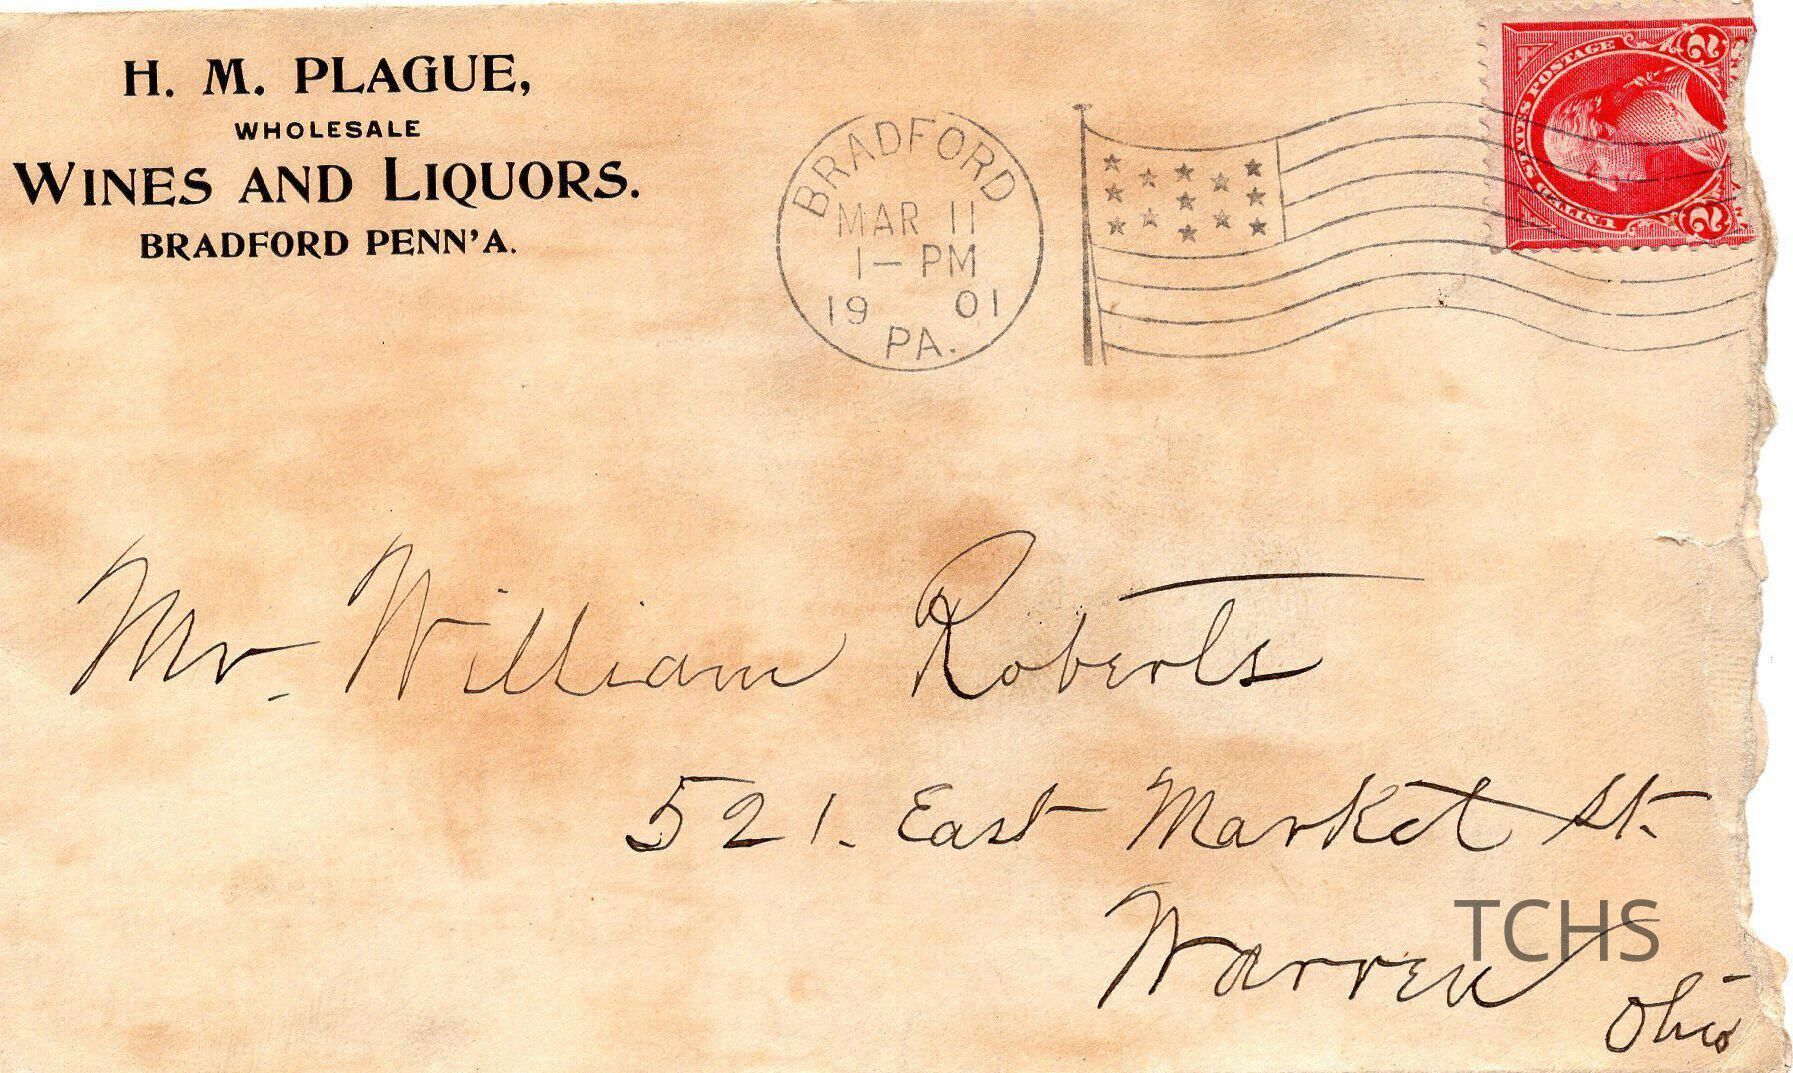 H. M. PLAGUE,
WHOLESALE
WINES AND LIQUORS.
BRADFORD PENN'A.
BRADFORD
MAR 11
1 - PM
19 01
PA.
UNITED STATES POSTAGE
2 2
Mr. William Roberts
521. East Market St.
Warren
Ohio
TCHS